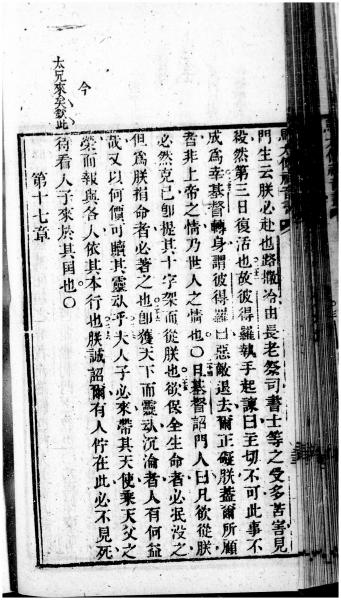 馬太傳福音書
門生云朕必赴也路撒冷由長老祭司書士等之受多苦害見
殺然第三日復活也故彼得羅執手起諫曰主切不可此事不
成爲幸基督轉身謂彼得羅曰惡敵退去爾正礙朕蓋爾所願
者非上帝之情乃世人之情也〇且基督詔門人曰凡欲從朕
必然克己卽提其十字架而從朕也欲保全生命者必泯没之
但爲朕捐命者必著之也卽獲天下而靈魂沉淪者人有何益
哉又以何價可贖其靈魂乎大人子必來帶其天使乘天父之
榮而報與各人依其本行也朕誠詔爾有人佇在此必不見死
今
太兄來矣欽此
待看人子來於其国也〇
第十七章